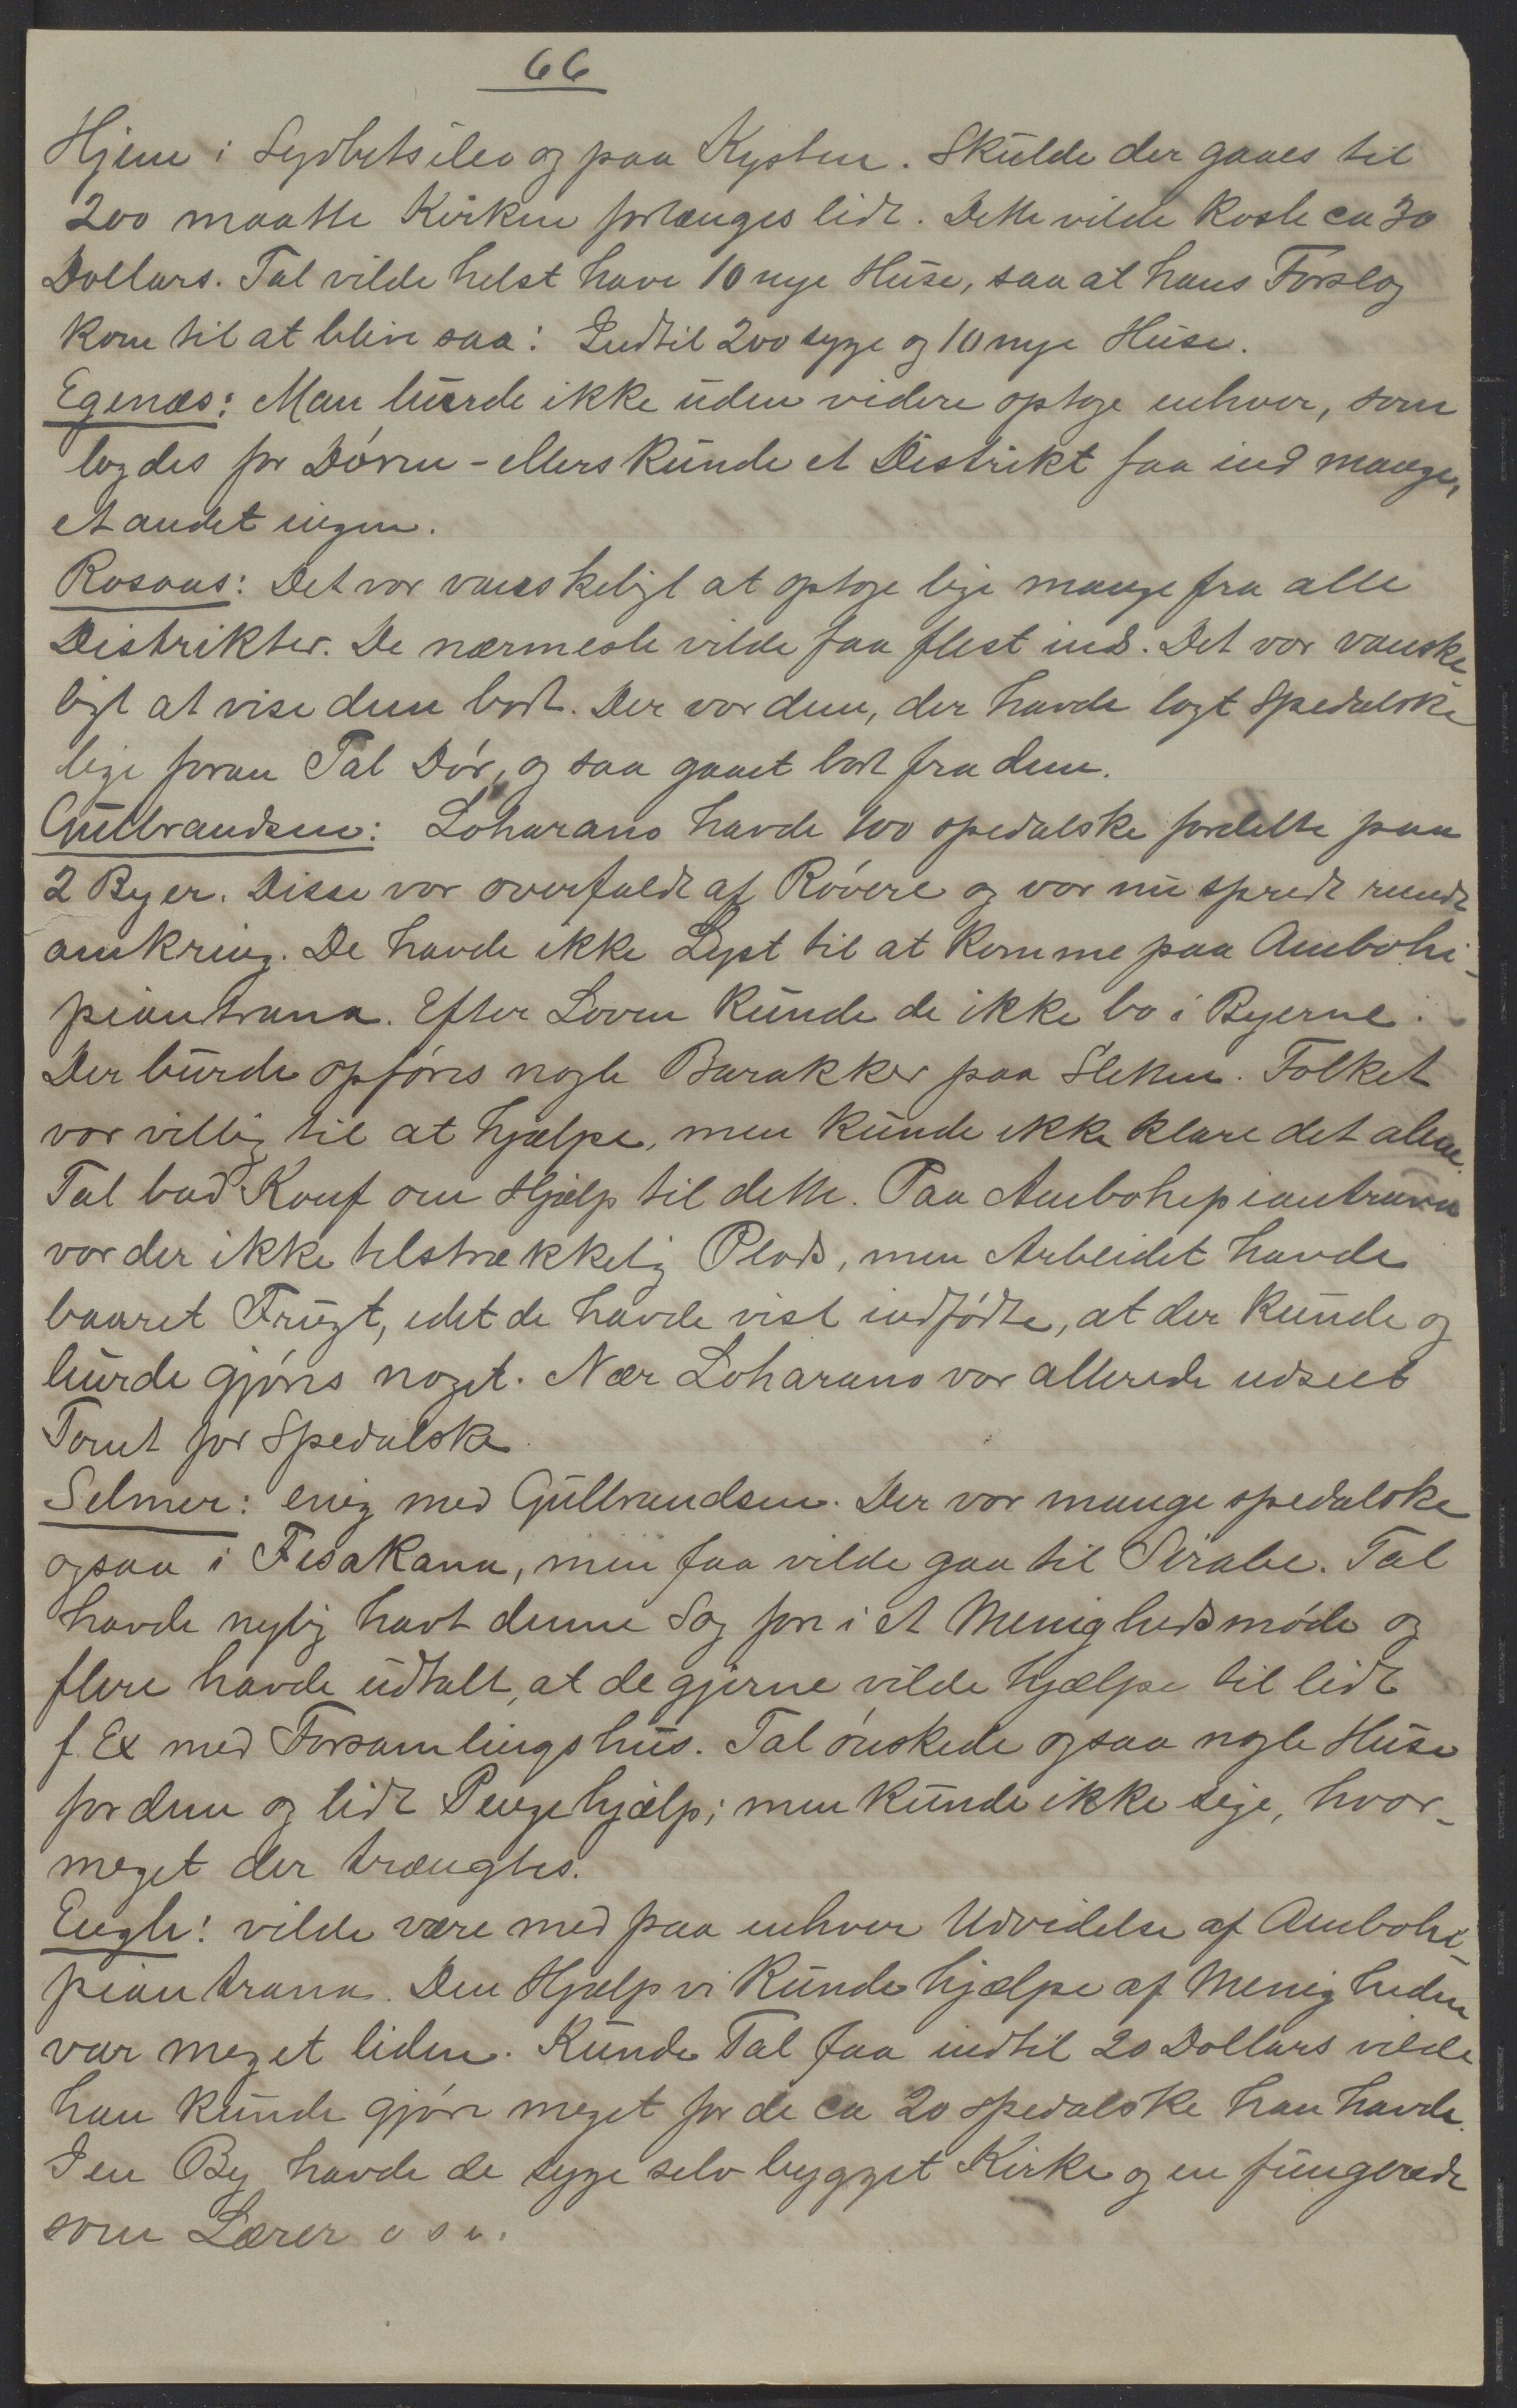 66
Hjem i Sydbetsileo og paa Kysten. Skulde der gaaes til
200 maatte Kirken forlænges lidt. Dette vilde koste ca 30
Dollars. Tal vilde helst have 10 nye Huse, saa at hans Forslag
kom til at blive saa: Indtil 200 syge og 10 nye Huse.
Egenæs: Man burde ikke uden videre optage enhver, som
lagdes for Døren - ellers kunde et Distrikt faa ind mange,
et andet ingen.
Rosaas: Det var vanskeligt at optage lige mange fra alle
Distrikter. De nærmeste vilde faa flest ind. Det var vanske-
ligt at vise dem bort. Der var dem, der havde lagt Spedalske
lige foran Tal Dør, og saa gaaet bort fra dem.
Gulbrandsen: Loharano havde 100 spedalske fordelte paa
2 Byer. Disse var overfaldt af Røvere og var nu spredt rundt
omkring. De havde ikke Lyst til at komme paa Ambohi-
piantrana. Efter Loven kunde de ikke bo i Byerne.
Der burde opføres nogle Barakker paa Sletten. Folket
var villig til at hjælpe, men kunde ikke klare det alene.
Tal bad Konf om Hjælp til dette. Paa Ambohipiantrana
var der ikke tilstrækkelig Plads, men Arbeidet havde
baaret Frugt, idet de havde vist indfødte, at der kunde og
burde gjøres noget. Nær Loharano var allerede udseet
Tomt for Spedalske
Selmer: enig med Gulbrandsen. Der var mange spedalske
ogsaa i Fisakana, men faa vilde gaa til Sirabe. Tal
havde nylig havt denne Sag fore i et Menighedsmøde og
flere havde udtalt, at de gjerne vilde hjælpe til lidt
f. Ex med Forsamlingshus. Tal ønskede ogsaa nogle Huse
for dem og lidt Pengehjælp; men kunde ikke sige, hvor-
meget der trængtes.
Engh: vilde være med paa enhver Udvidelse af Ambohi-
piantrana. Den Hjælp vi kunde hjælpe af Menigheden
var meget liden. Kunde Tal faa indtil 20 Dollars vilde
han kunde gjøre meget for de ca 20 spedalske han havde.
I en By havde de syge selv bygget Kirke og en fungerede
som Lærer o s v.